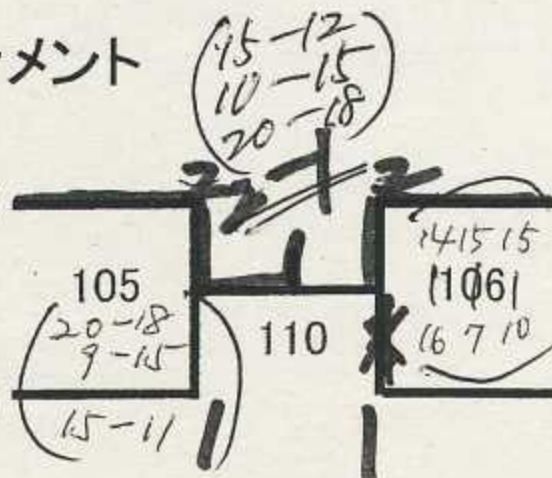 メント
15-12
10-15
20-18
2-1
3
2
105
20-18
9-15
15-11
110
14 15 15
106
16 7 10